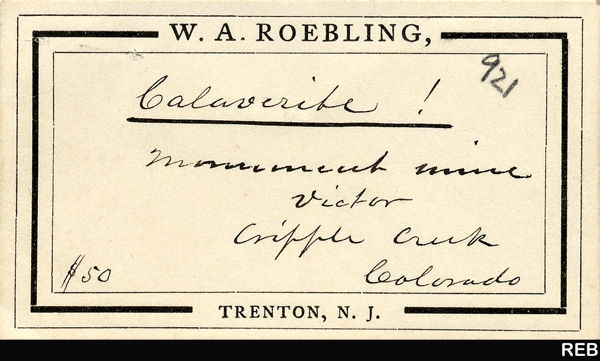 W. A. ROEBLING,
921
Calaverite !
Monument mine
Victor
Cripple Creek
$50
Colorado
TRENTON, N. J.
REB